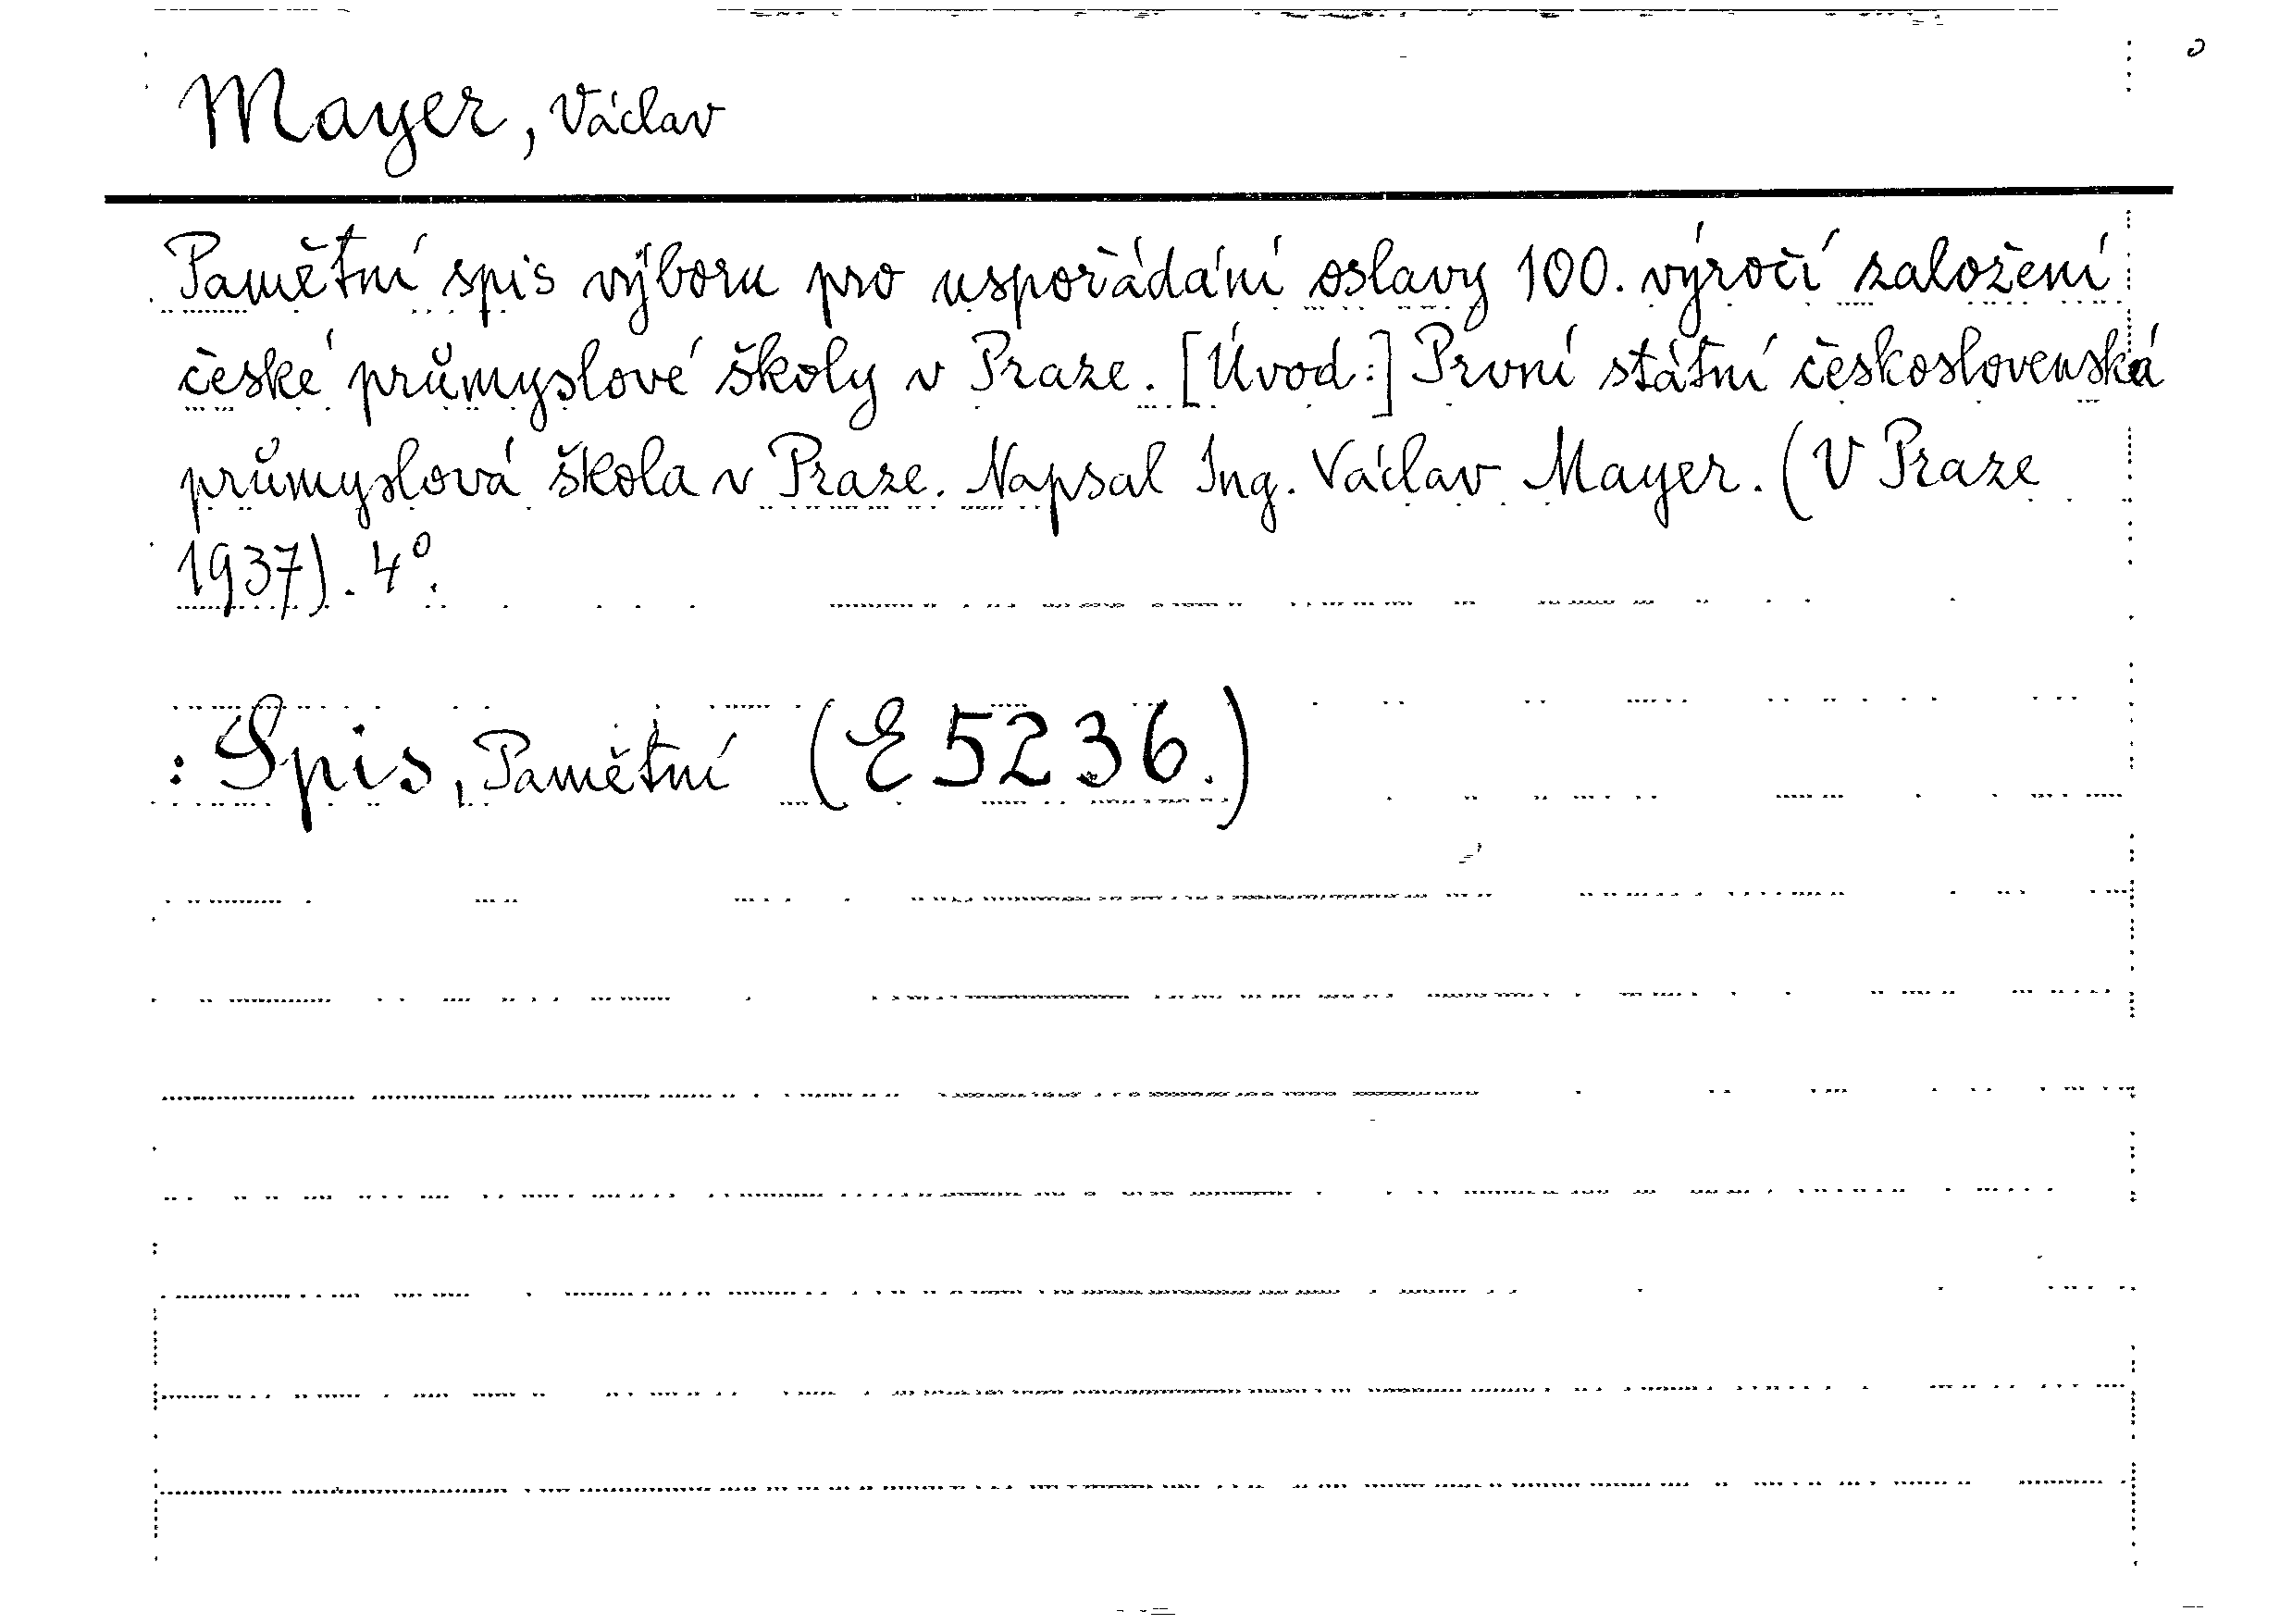 Mayer, Václav
Pamětní spis výboru pro uspořádání oslavy 100. výročí založení
české průmyslové školy v Praze. [Úvod:] První státní československá
průmyslová škola v Praze. Napsal Ing. Václav Mayer. (V Praze
1937). 4°.
: Spis, Pamětní (E 5236.)